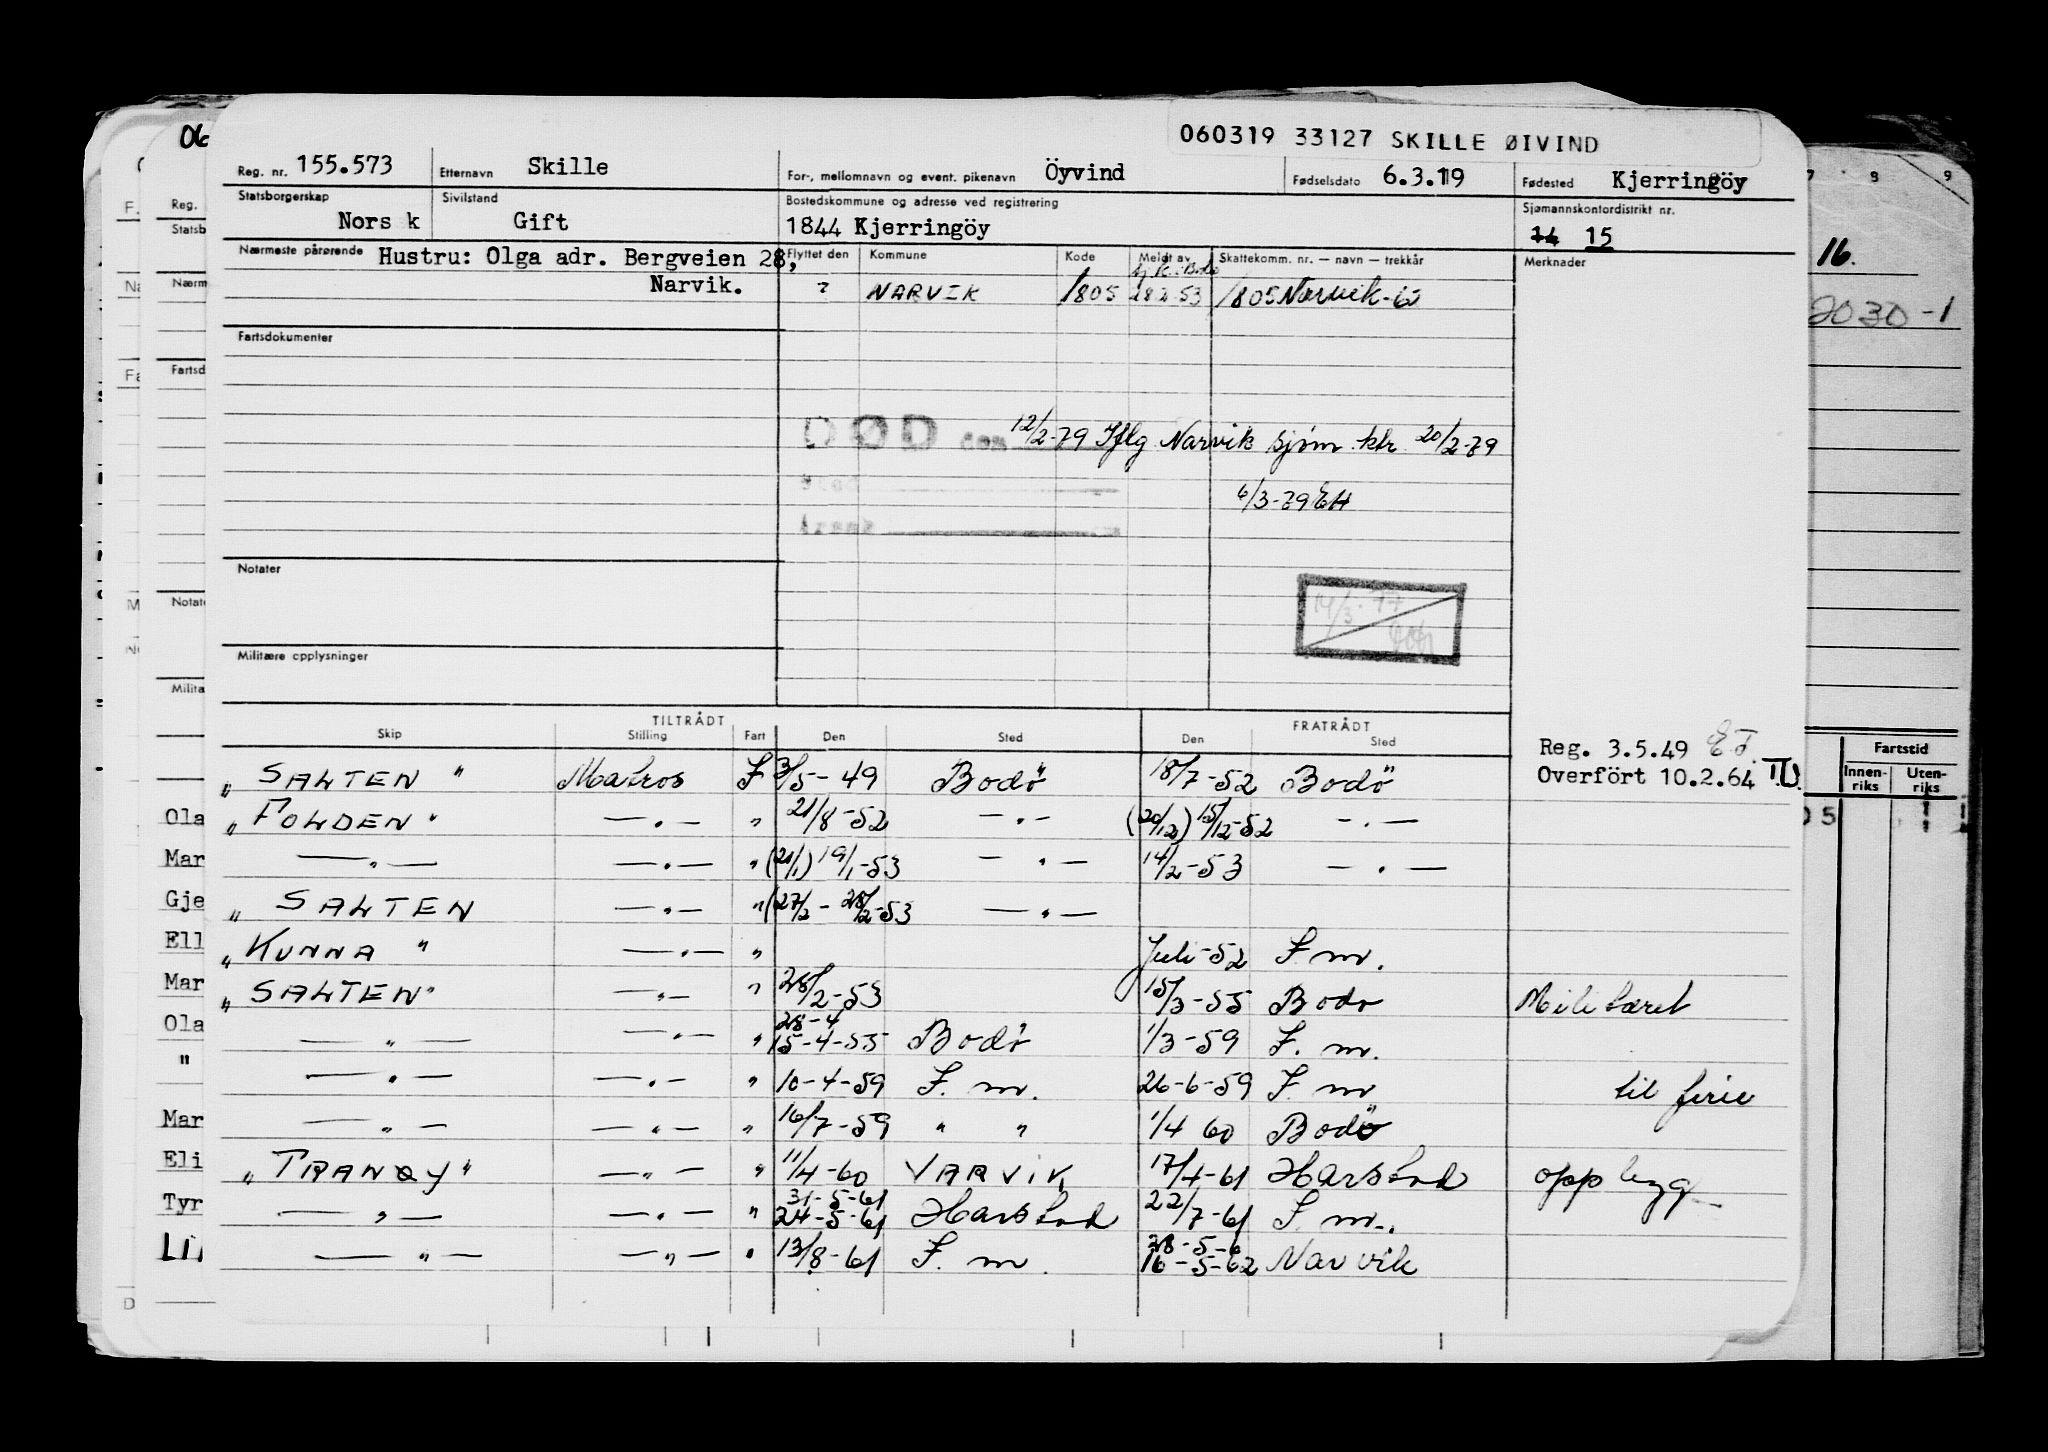 060319 33127 SKILLE ØIVIND
Reg. nr. 155.573 Etternavn Skille For-, mellomnavn og event. pikenavn Öyvind Fødselsdato 6.3.19 Fødested Kjerringöy
Statsborgerskap Sivilstand Bostedskommune og adresse ved registrering Sjømannskontordistrikt nr.
Norsk Gift 1844 Kjerringöy 14 15
Nærmeste pårørende Hustru: Olga adr. Bergveien 28, Flyttet den Kommune Kode Meldt av Skattekomm. nr. — navn — trekkår Merknader
Narvik. ? NARVIK 1805 28 2-53 1805 Narvik-
Fartsdokumenter
DØD den 12/2-79 Iflg Narvik sjøm. ktr. 20/2-79
Sted
Årsak
6/3-79 EH
Notater
14/3-77
Militære opplysninger
TILTRÅDT FRATRÅDT
Skip Stilling Fart Den Sted Den Sted
Reg. 3.5.49
Overfört 10.2.64
"SALTEN" Matros I 3/5-49 Bodø 18/7-52 Bodø
"FOLDEN" —"— " 21/8-52 —"— (20/12) 15/12-52 —"—
—"— —"— " (21/1) 19/1-53 —"— 14/2-53 —"—
"SALTEN —"— " (27/2 - 28/2-53 —"—
"KUNNA" —"— " Juli-52 F. m.
"SALTEN" —"— " 28/2-53 15/3-55 Bodø Militæret
28-4
—"— —"— " 15-4-55 Bodø 1/3-59 F. m.
—"— —"— " 10-4-59 F. m. 26-6-59 F. m til ferie
—"— —"— " 16/7-59 " " 1/4 60 Bodö
"TRANØY" —"— " 11/4-60 NARVIK 17/4-61 Harstad opplegg
31-5-61
—"— —"— " 24-5-61 Harstad 22/7-61 F. m.
28-5-6
—"— —"— " 13/8-61 F. m. 16-5-62 Narvik
06
Reg.
Statsb
Nærm
Fartsd
Notate
Milita
Ola
Mar
Gje
Ell
Mar
Ola
"
Mar
Eli
Tyr
7 8 9
16.
2030-1
Fartstid
Innen-riks Uten-riks
05